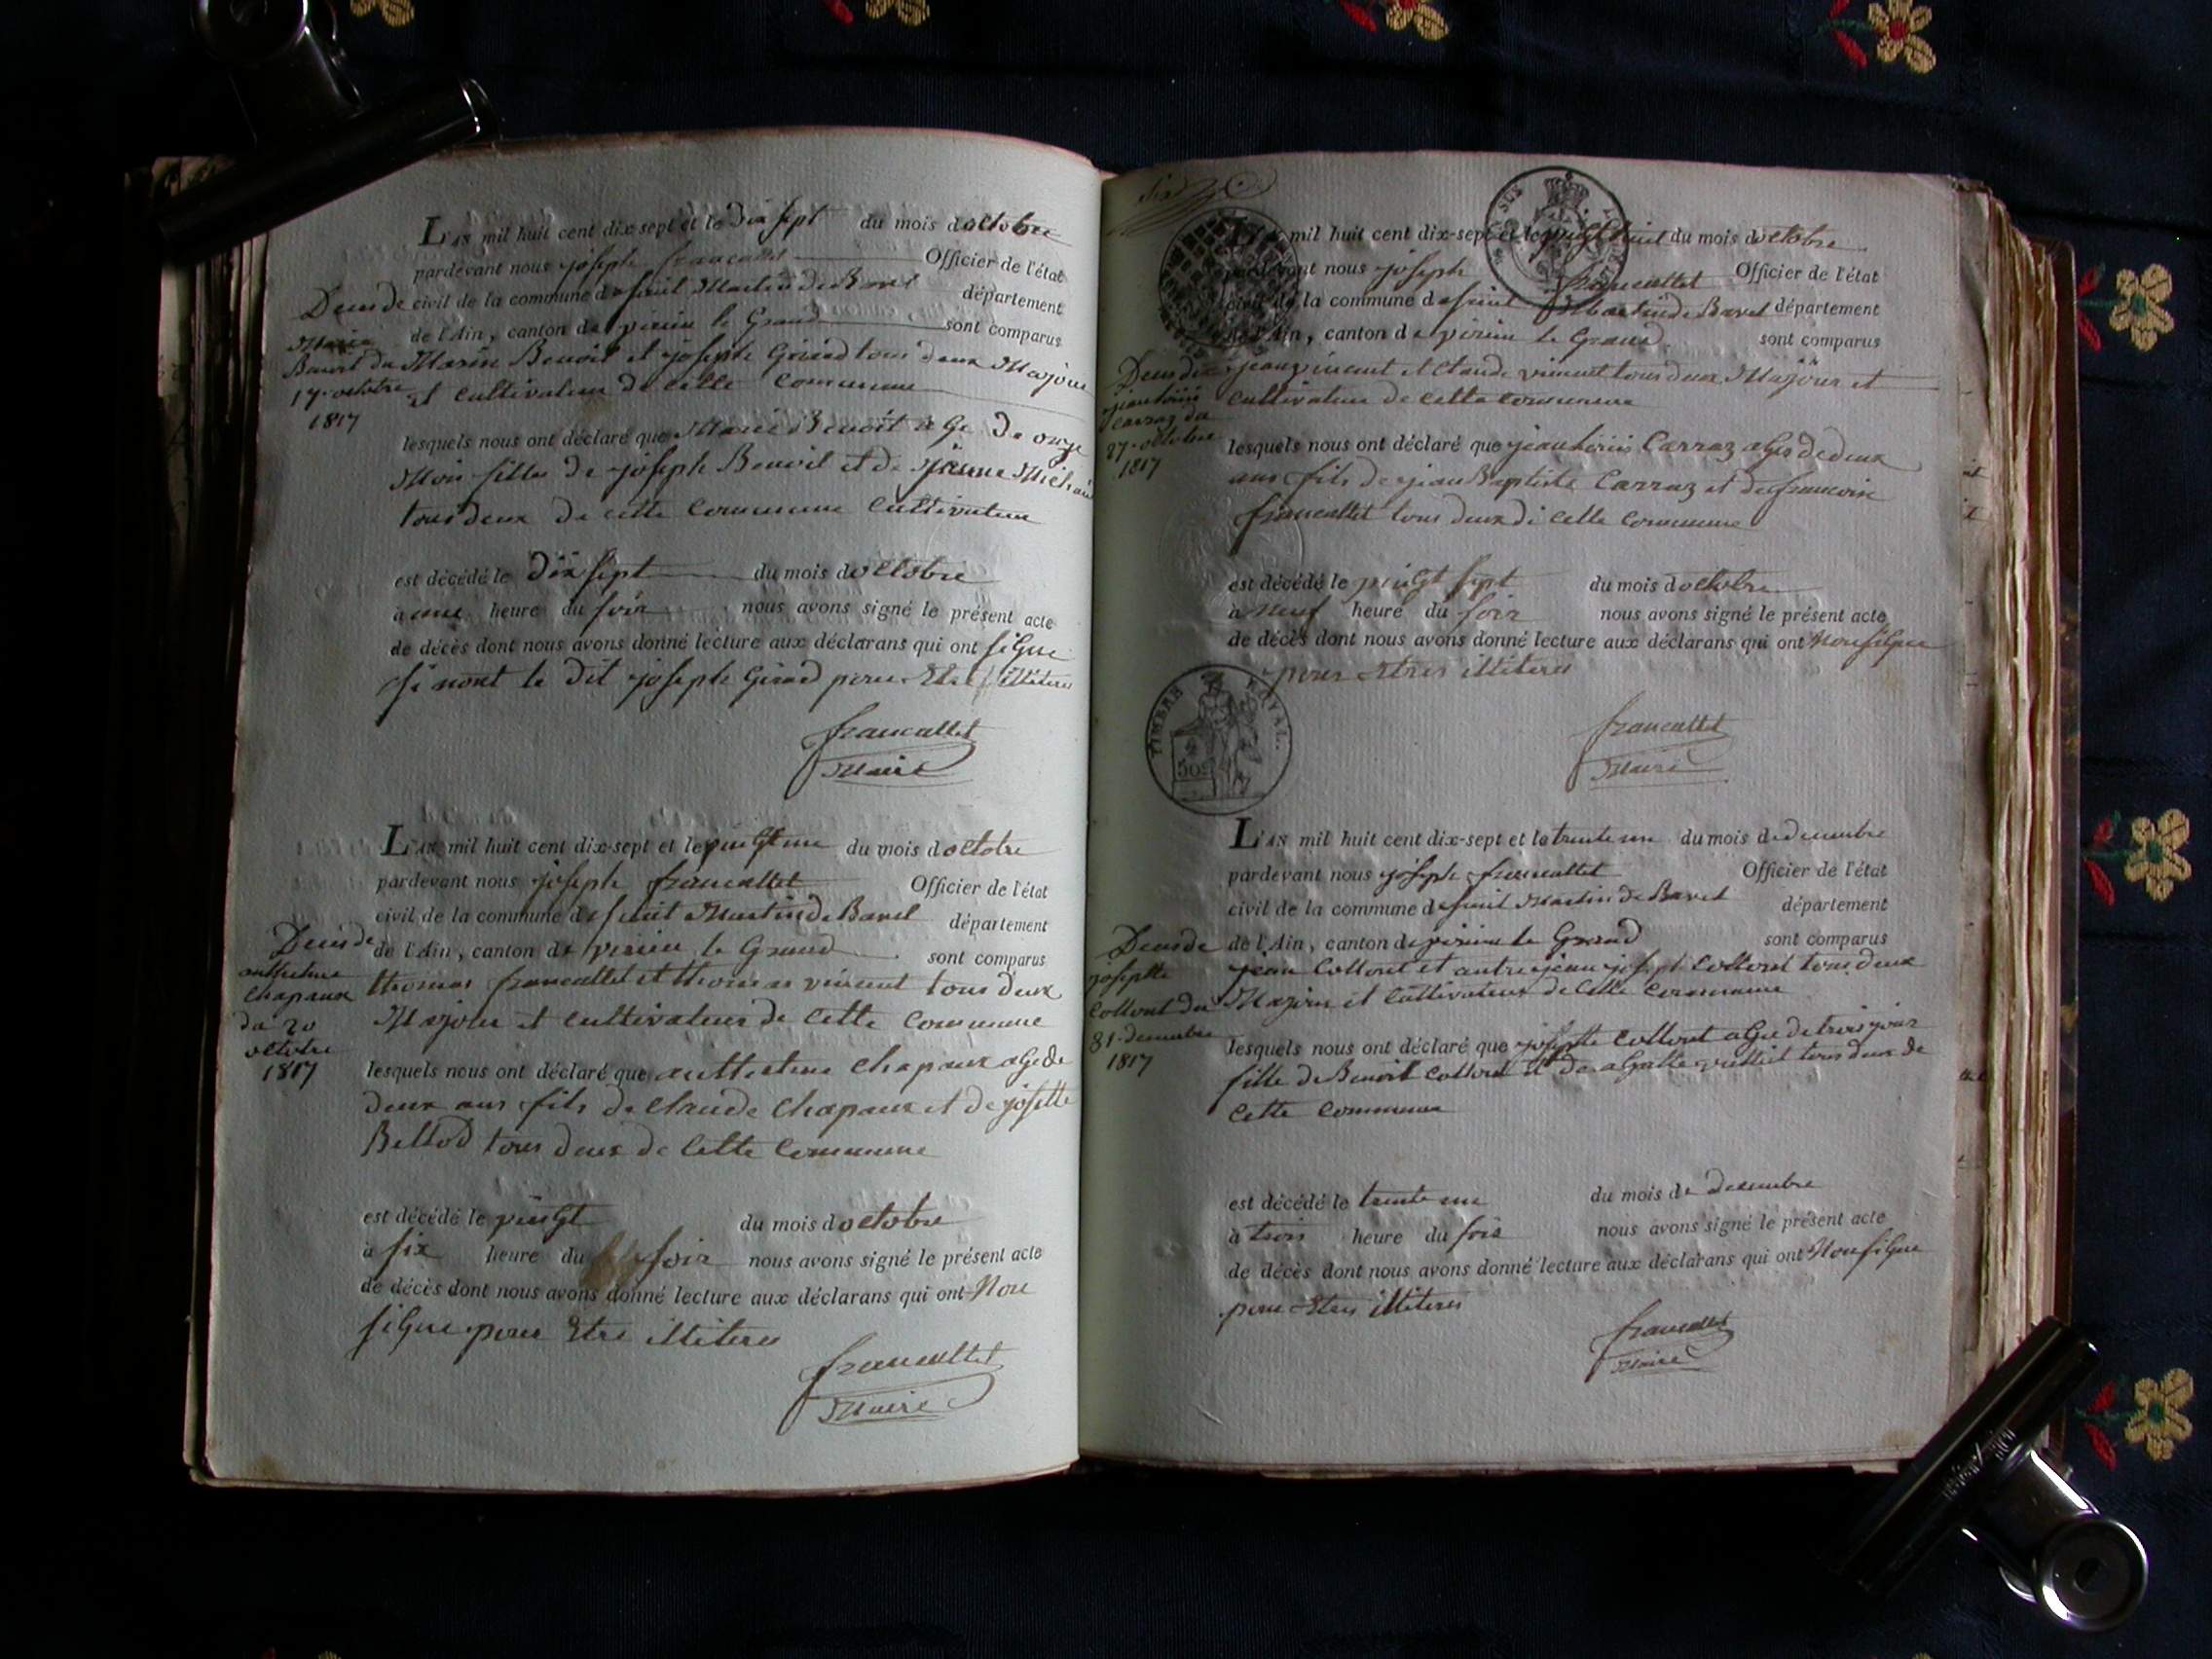 L'AN mil huit cent dix-sept et le Dix sept du mois doctobre
pardevant nous joseph francallet Officier de l'état
civil de la commune de saint Martin de Bavel département
de l'Ain, canton de virieu le Grand sont comparus
Marin Benoit et joseph Girard tous deux Majeur
et cultivateur de cette commune
Deces de
Marie
Benoit du
17 octobre
1817
lesquels nous ont déclaré que Marie Benoit age de onze
Mois fille de joseph Benoit et de jeanne Michaud
tous deux de cette commune cultivateur
est décédé le Dix sept du mois doctobre
à une heure du soir nous avons signé le présent acte
de décès dont nous avons donné lecture aux déclarans qui ont signe
si nont le dit joseph Girard pour Etre illiteres
francallet
Maire
L'AN mil huit cent dix-sept et le vingt une du mois doctobre
pardevant nous joseph francallet Officier de l'état
civil de la commune de saint Martin de Bavel département
de l'Ain, canton de virieu le Grand sont comparus
thomas francallet et thomas vincent tous deux
Majeur et cultivateur de cette commune
Deces de
anthelme
Chapaux
du 20
octobre
1817
lesquels nous ont déclaré que anthelme Chapaux age de
deux ans fils de Claude Chapaux et de josette
Bellod tous deux de cette commune
est décédé le vingt du mois doctobre
à six heure du soir nous avons signé le présent acte
de décès dont nous avons donné lecture aux déclarans qui ont Non
signe pour Etre illiteres
francallet
Maire
six
L'AN mil huit cent dix-sept et le vingt huit du mois doctobre
pardevant nous joseph francallet Officier de l'état
civil de la commune de saint Martin de Bavel département
de l'Ain, canton de virieu le Grand sont comparus
jean vincent et Claude vincent tous deux Majeur et
cultivateur de cette commune
Deces de
jean louis
Carraz du
27 octobre
1817
lesquels nous ont déclaré que jean louis Carraz ages de deux
ans fils de jean Baptiste Carraz et de francoise
francallet tous deux di cette commune
est décédé le vingt sept du mois doctobre
à neuf heure du soir nous avons signé le présent acte
de décès dont nous avons donné lecture aux déclarans qui ont Non signe
pour Etres illiteres
TIMBRE ROYAL.
50c
francallet
Maire
L'AN mil huit cent dix-sept et le trente une du mois de decembre
pardevant nous joseph francallet Officier de l'état
civil de la commune de saint Martin de Bavel département
de l'Ain, canton de virieu le Grand sont comparus
jean Collont et autre jean joseph Collont tous deux
Majeur et Cultivateur de cette commune
Deces de
josephte
Collont du
31 decembre
1817
lesquels nous ont déclaré que josephte Collont age de trois jour
fille de Benoit Collont et de agathe tous deux de
cette commune
est décédé le trente une du mois de decembre
à trois heure du soir nous avons signé le présent acte
de décès dont nous avons donné lecture aux déclarans qui ont Non signe
pour Etres illiteres
francallet
Maire